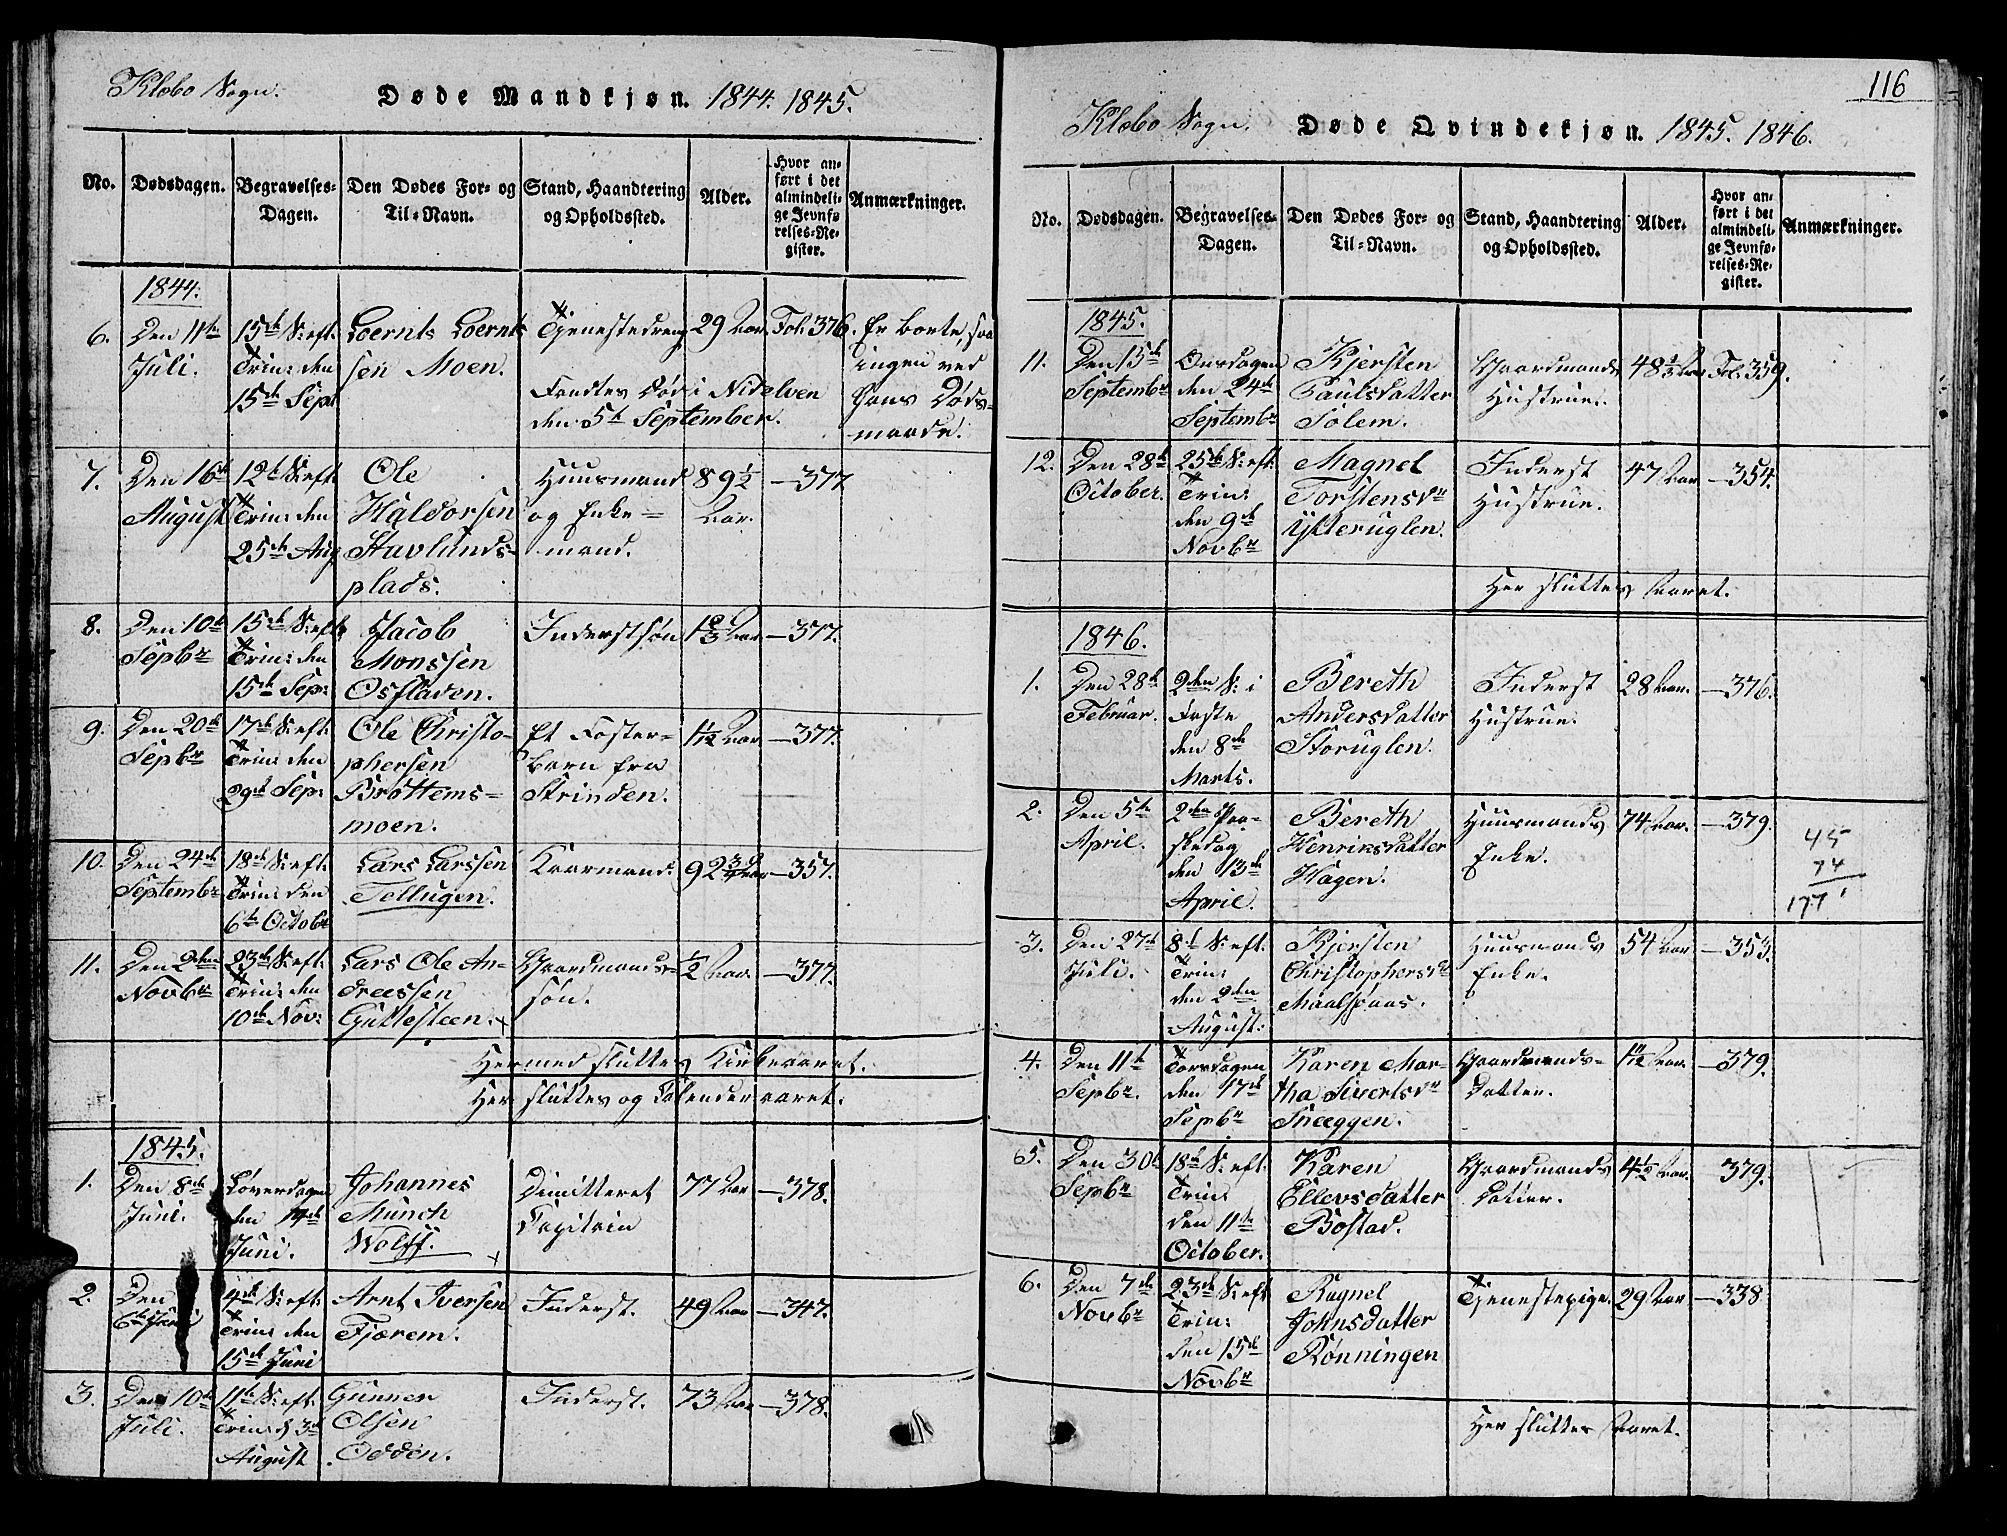 Klæbo Sogn.
Døde Mandkjøn. 1844. 1845.
No.
Dødsdagen.
Begravelses-
Dagen.
Den Dødes For- og
Til-Navn.
Stand, Haandtering
og Opholdssted.
Alder.
Hvor an-
ført i det
almindeli-
ge Jevnfø-
relses-Re-
gister.
Anmærkninger.
1844.
6.
Den 11te
Juli.
15de S: eft:
Trin: den
15de Sept
Loernts Loernts
sen Moen.
Tjenestedreng
Fandtes Død i Nidelven
den 5te September.
29 Aar.
Fol. 376.
Er borte, saa
ingen ved
hans Døds-
maade.
7.
Den 16de
August
12te S: eft
Trin: den
25de Aug
Ole
Haldorsen
Stavlunds-
plads.
Huusmand
og Enke-
mand.
89½
Aar.
—377
8.
Den 10de
Sepbr
15de S: eft
Trin: den
15de Sep:
Jacob
Monssen
Osfladen.
Inderstsøn
Aar
—377.
9.
Den 20de
Sepbr
17de S: eft:
Trin: den
29de Sep:
Ole Christo-
phersen
Brøttems-
moen.
Et Foster-
barn fra
Strinden.
Aar
—377.
10.
Den 24de
Septembr
18de S: eft:
Trin: den
6te Octobr
Lars Larssen
Tellugen.
Kaarmand.
92¾ Aar
—357.
11.
Den 2den
Novbr
23de S: eft:
Trin: den
10de Nov:
Lars Ole An-
dreessen
Guttesteen.
Gaardmands-
søn.
½ Aar.
—377.
Hermed sluttes Kirkeaaret.
Her sluttes og Calenderaaret.
1845.
1.
Den 8de
Juni.
Løverdagen
den 14de
Juni.
Johannes
Munch
Wolff.
Dimitteret
Capitain
77 Aar
—378.
2.
Den
6te Juni
4de S: eft:
Trin: den
15de Juni
Arnt Iversen
Fjærem.
Inderst.
49 Aar
—347.
3.
Den 10de
Juli.
11te S: eft:
Trin: d 3de
August
Gunner
Olsen
Odden.
Inderst.
73 Aar
—378.
116
Klæbo Sogn.
Døde Qvindekjøn. 1845. 1846.
No.
Dødsdagen.
Begravelses-
Dagen.
Den Dødes For- og
Til-Navn.
Stand, Haandtering
og Opholdssted.
Alder.
Hvor an-
ført i det
almindeli-
ge Jevnfø-
relses-Re-
gister.
Anmærkninger.
1845.
11.
Den 15de
Septembr
Onsdagen
den 24de
Septembr
Kjersten
Paulsdatter
Solem.
Gaardmands
Hustrue.
48⅓ Aar
Fol. 359.
12.
Den 28de
October.
25de S: eft:
Trin:
den 9de
Novbr
Magnel
Torstensdr
Ytteruglen.
Inderst
Hustrue.
47 Aar
—354.
Her sluttes Aaret.
1846.
1.
Den 28de
Februar.
2den S: i
Faste
den 8de
Marts.
Bereth
Andersdatter
Storuglen.
Inderst
Hustrue.
28 Aar.
—376.
2.
Den 5te
April.
2den Paa-
skedag
den 13de
April.
Bereth
Henriksdatter
Hagen.
Huusmands
Enke.
74 Aar.
—379.
45
74
177
3.
Den 27de
Juli.
8de S: eft:
Trin:
den 2den
August.
Kjersten
Christophersdr
Maalsøaas.
Huusmands
Enke.
54 Aar
—353.
4.
Den 11te
Sepbr.
Torsdagen
den 17de
Sepbr
Karen Mar-
tha Sivertsdr
Sneeggen.
Gaardmands-
Datter.
Aar.
—379.
65.
Den 30te
Sepbr
18de S: eft:
Trin:
den 11te
October.
Karen
Ellevsdatter
Bostad.
Gaardmands
datter.
Aar.
379.
6.
Den 7de
Novbr
23de S: eft
Trin:
den 15de
Novbr
Ragnel
Johnsdatter
Rønningen
Tjenestepige.
29 Aar
—338
Her sluttes Aaret.